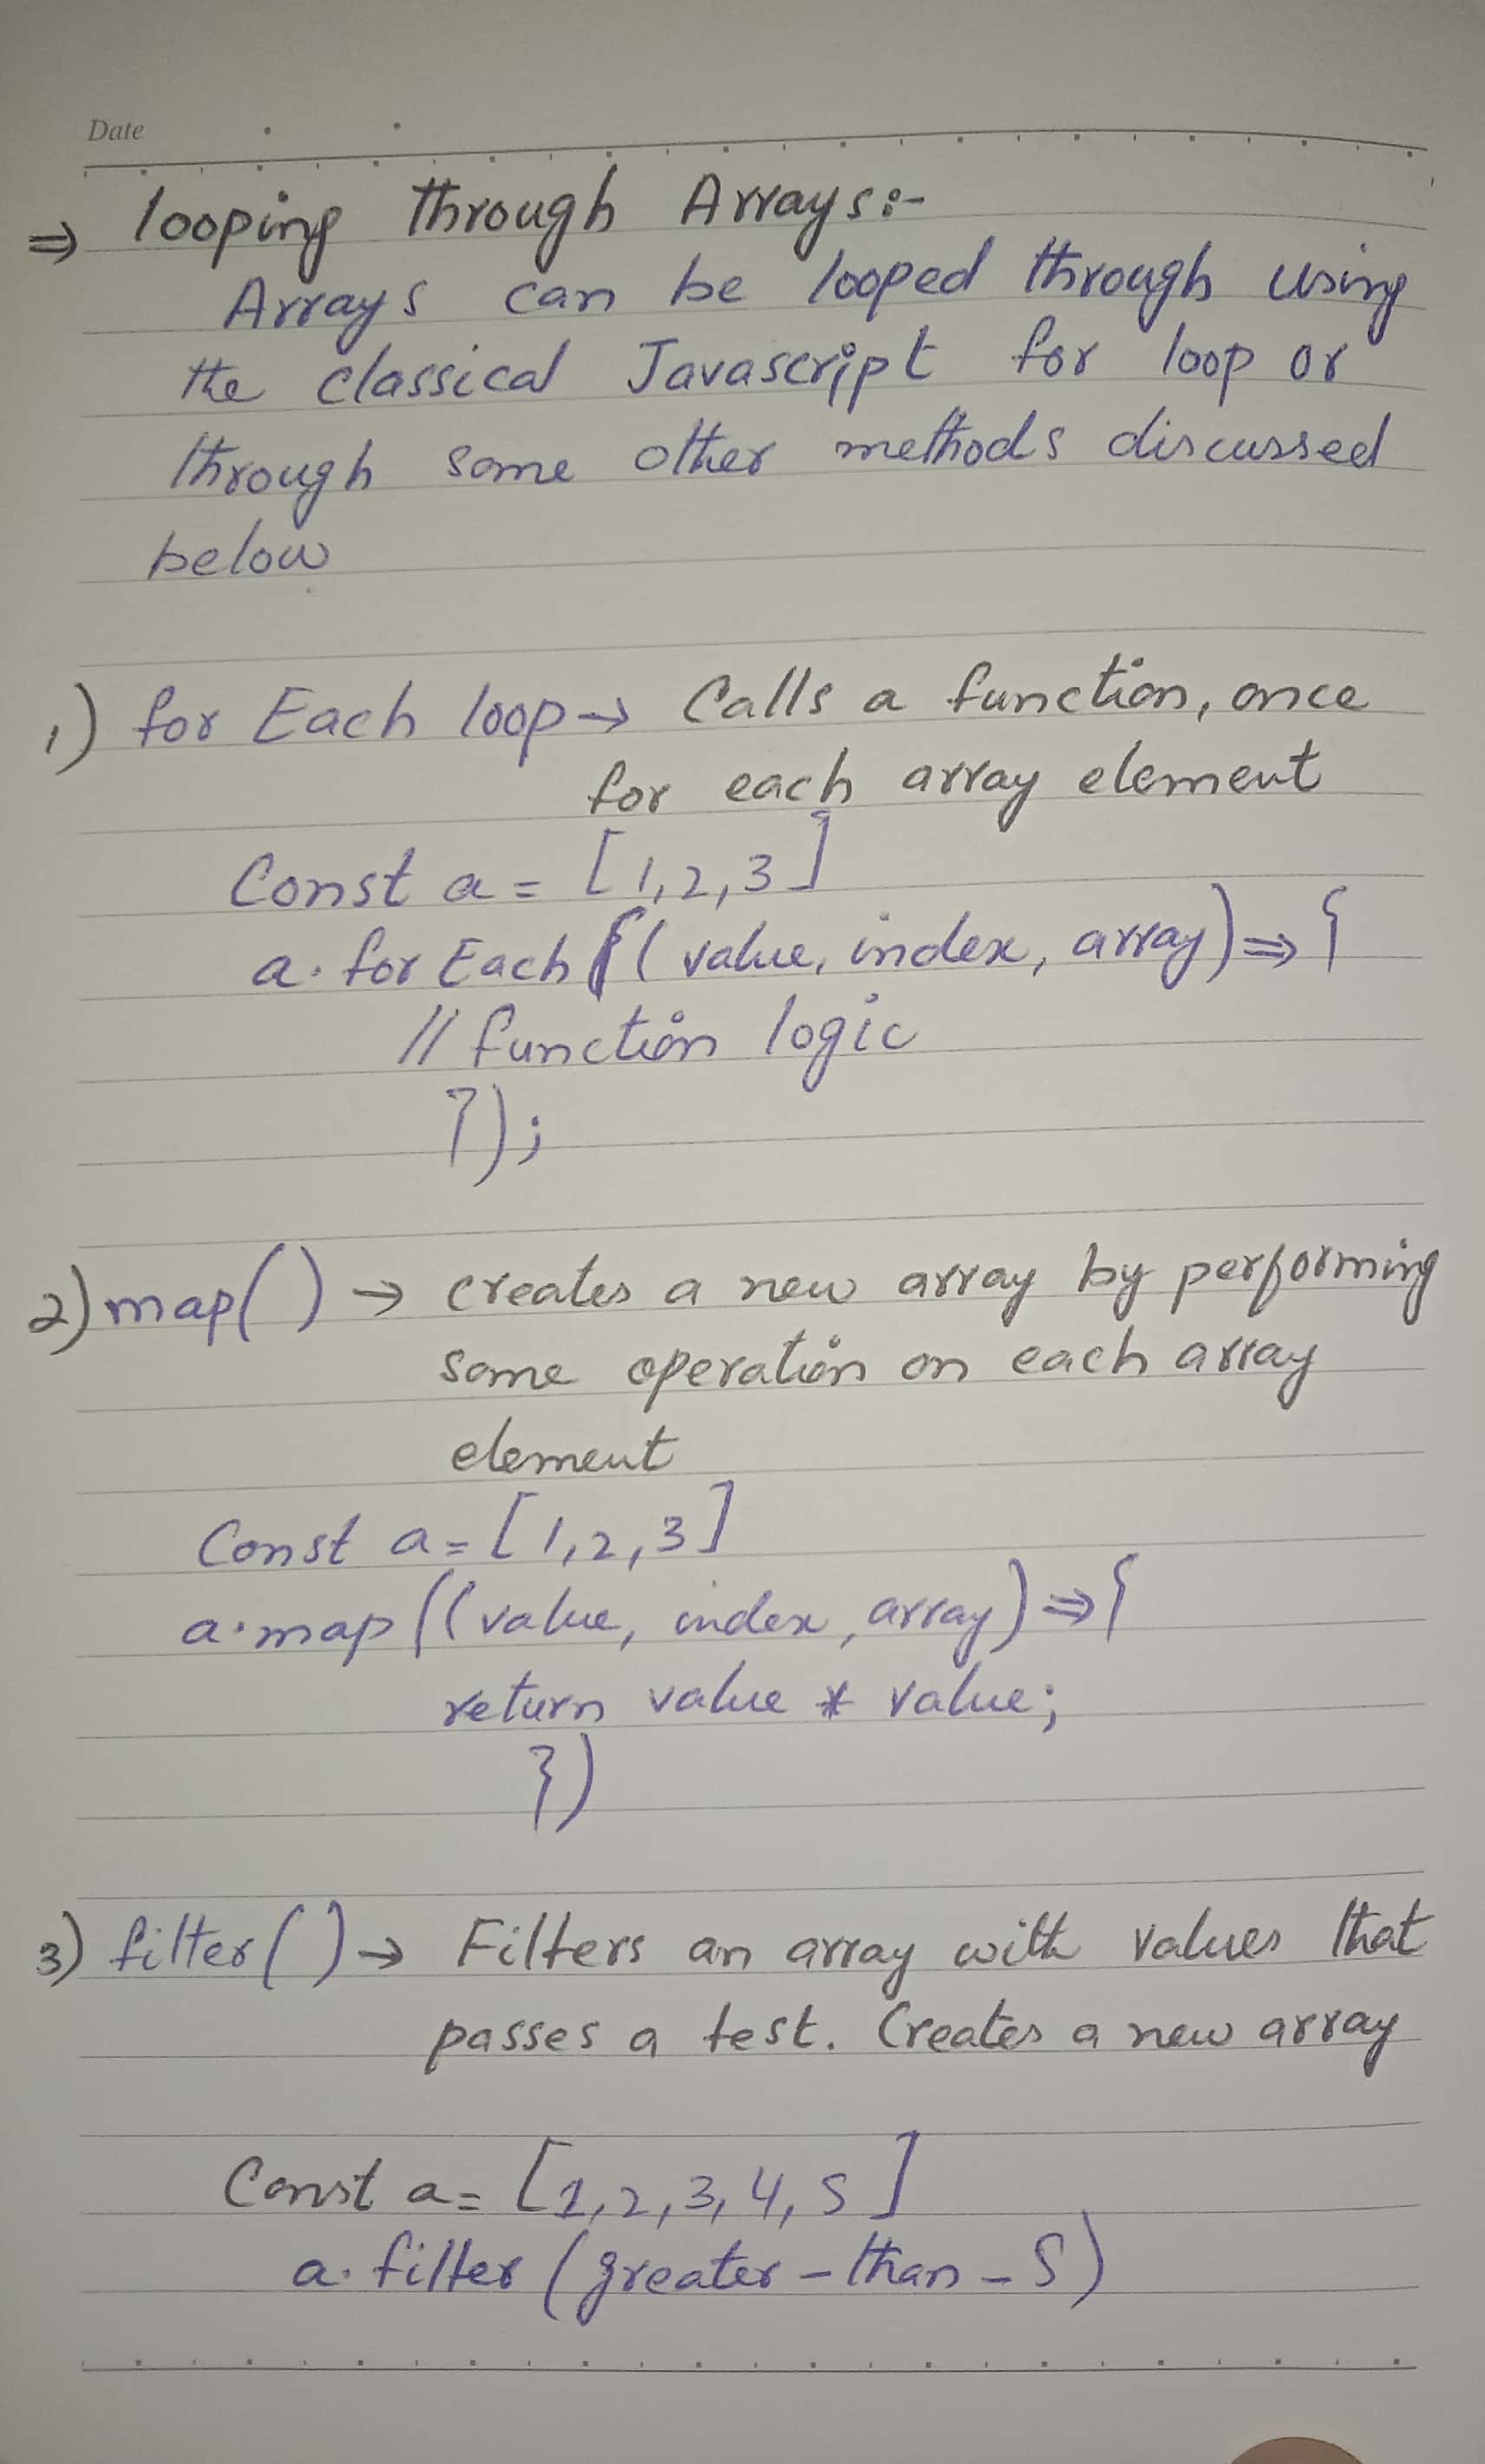 Date
⇒ looping through Arrays:-
Arrays can be looped through using
the classical Javascript for loop or
through some other methods discussed
below
1) for Each loop → Calls a function, once
for each array element
Const a = [1,2,3]
a. for Each ((value, index, array) ⇒ {
// function logic
});
2) map() → creates a new array by performing
some operation on each array
element
Const a = [1,2,3]
a.map ((value, index, array) ⇒ {
return value * value;
})
3) filter() → Filters an array with values that
passes a test. Creates a new array
Const a = [1,2,3,4,5]
a. filter (greater - than - 5)